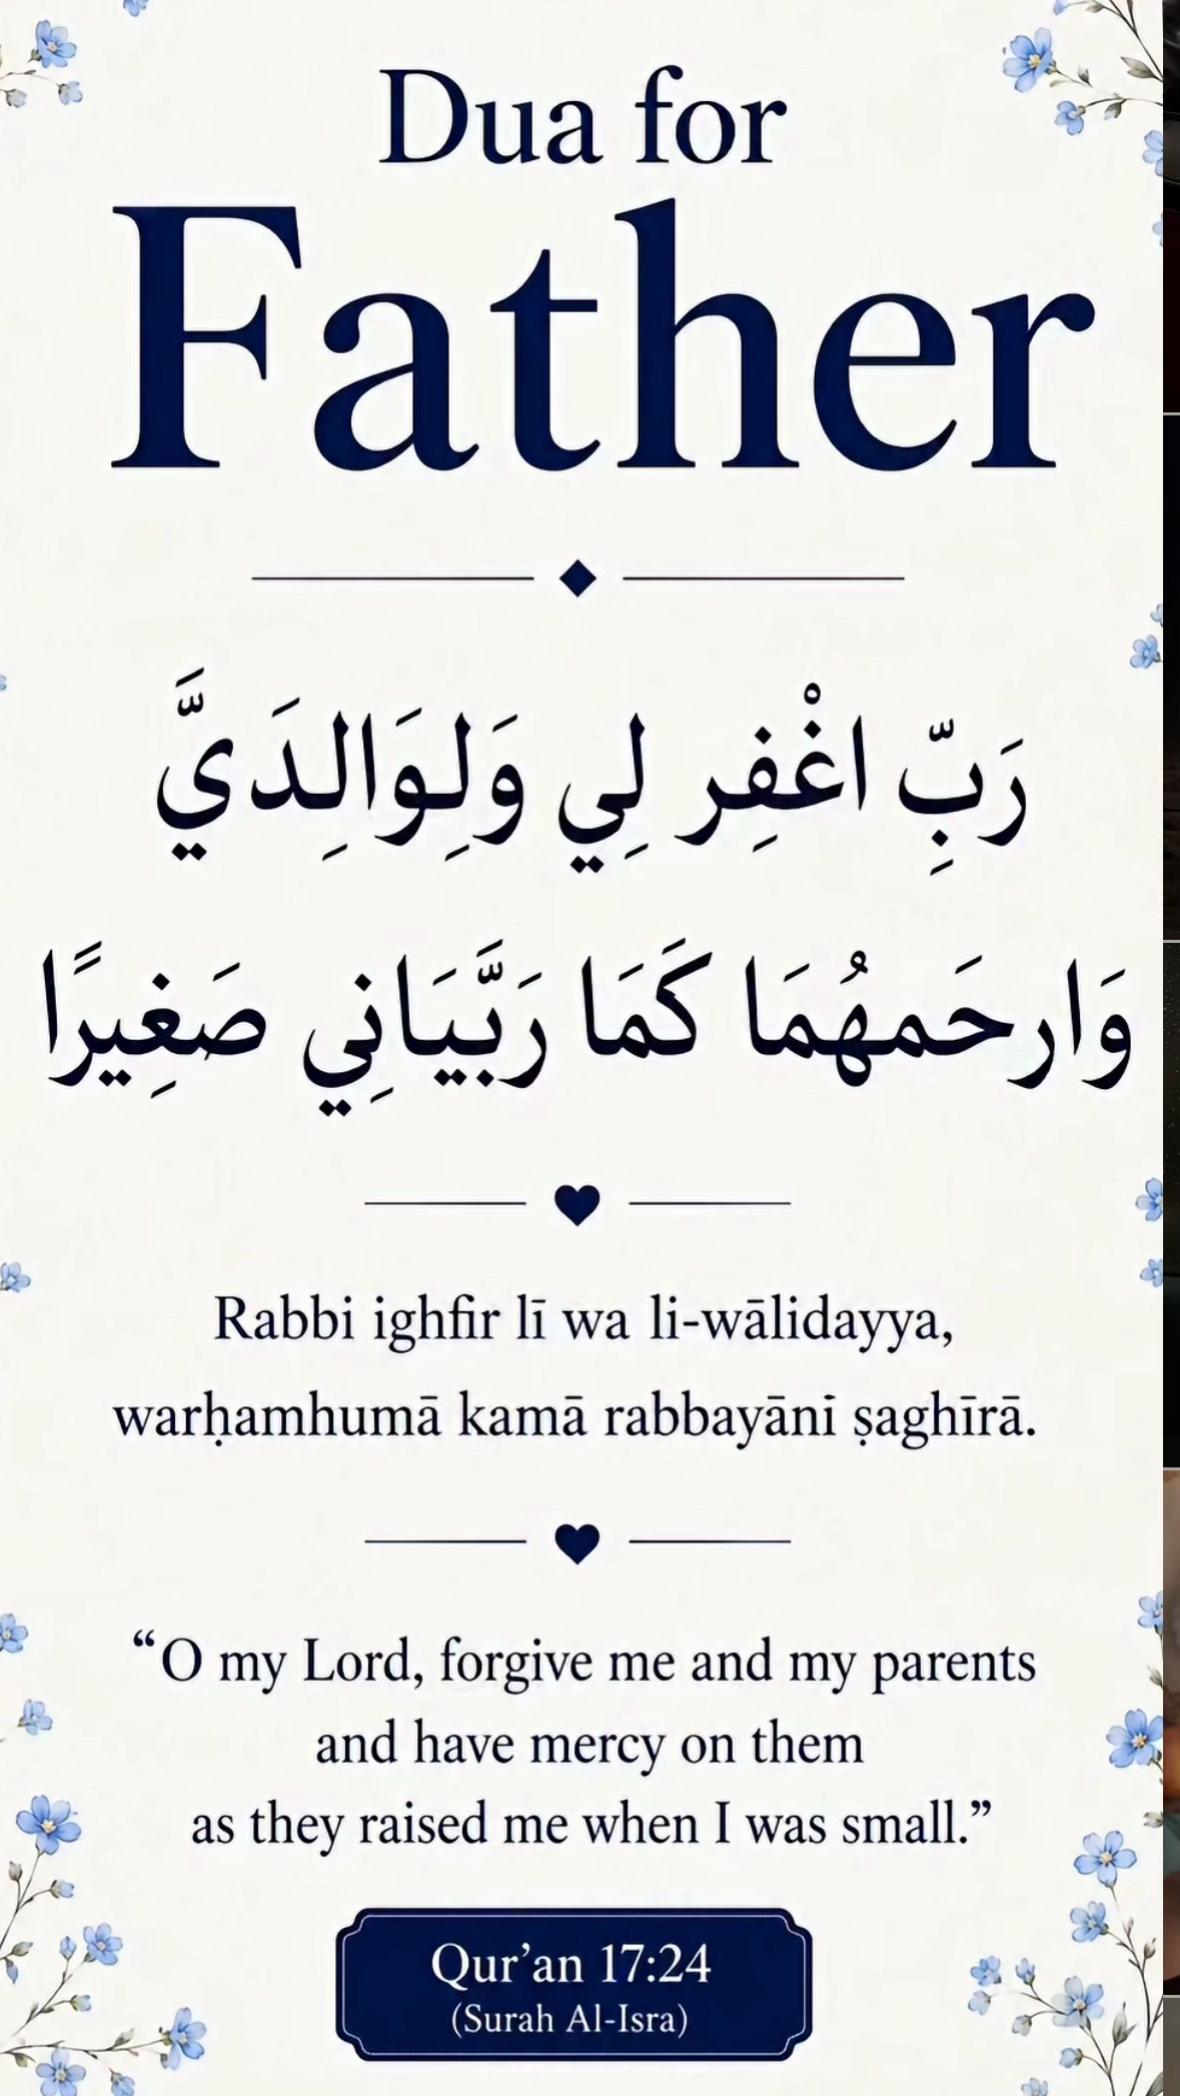 Dua for
Father
رَبِّ اغْفِر لِي وَلِوَالِدَيَّ
وَارحَمهُمَا كَمَا رَبَّيَانِي صَغِيرًا
Rabbi ighfir lī wa li-wālidayya,
warḥamhumā kamā rabbayāni ṣaghīrā.
“O my Lord, forgive me and my parents
and have mercy on them
as they raised me when I was small.”
Qur’an 17:24
(Surah Al-Isra)